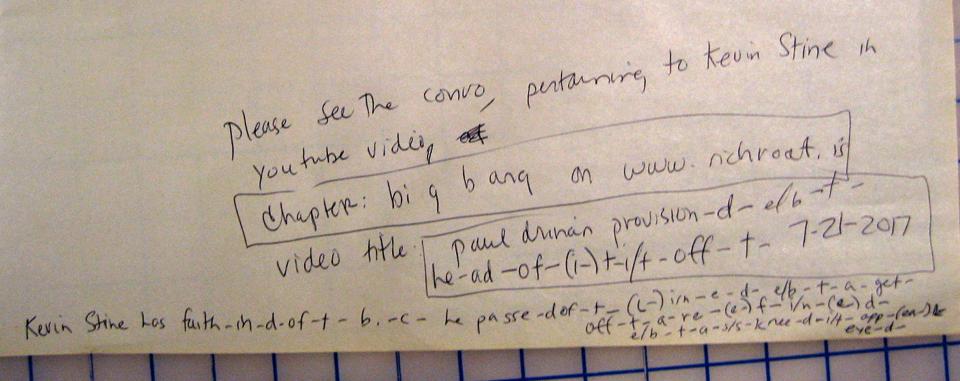 please see The convo, pertaining to Kevin Stine in
youtube video,
Chapter: big bang on www.richroat.is
video title: paul drinan provision-d-e/b-t-
he-ad-of-(i-)t-i/t-off-t- 7-21-2017
Kevin Stine has faith-in-d-of-t-b.-c- he passe-dof-t-(i-)i/n-e-d- e/b-t-a-get-
off-t-a-re-(e)f-i/n-(e)d-
e/b-t-a-s/s-knee-d-i/t-app-(ea-)
eye-d-